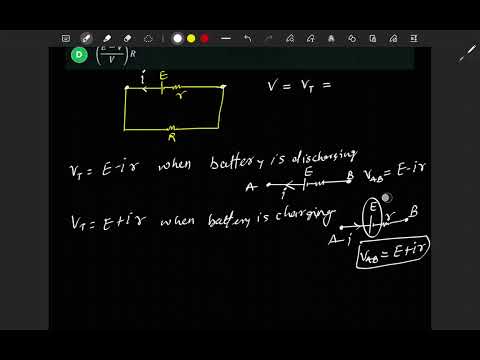 D (E-V/V) R
i E r
V = V_T =
R
V_T = E-ir when battery is discharging
A i E B V_AB = E-ir
V_T = E+ir when battery is charging
A i E r B
V_AB = E+ir